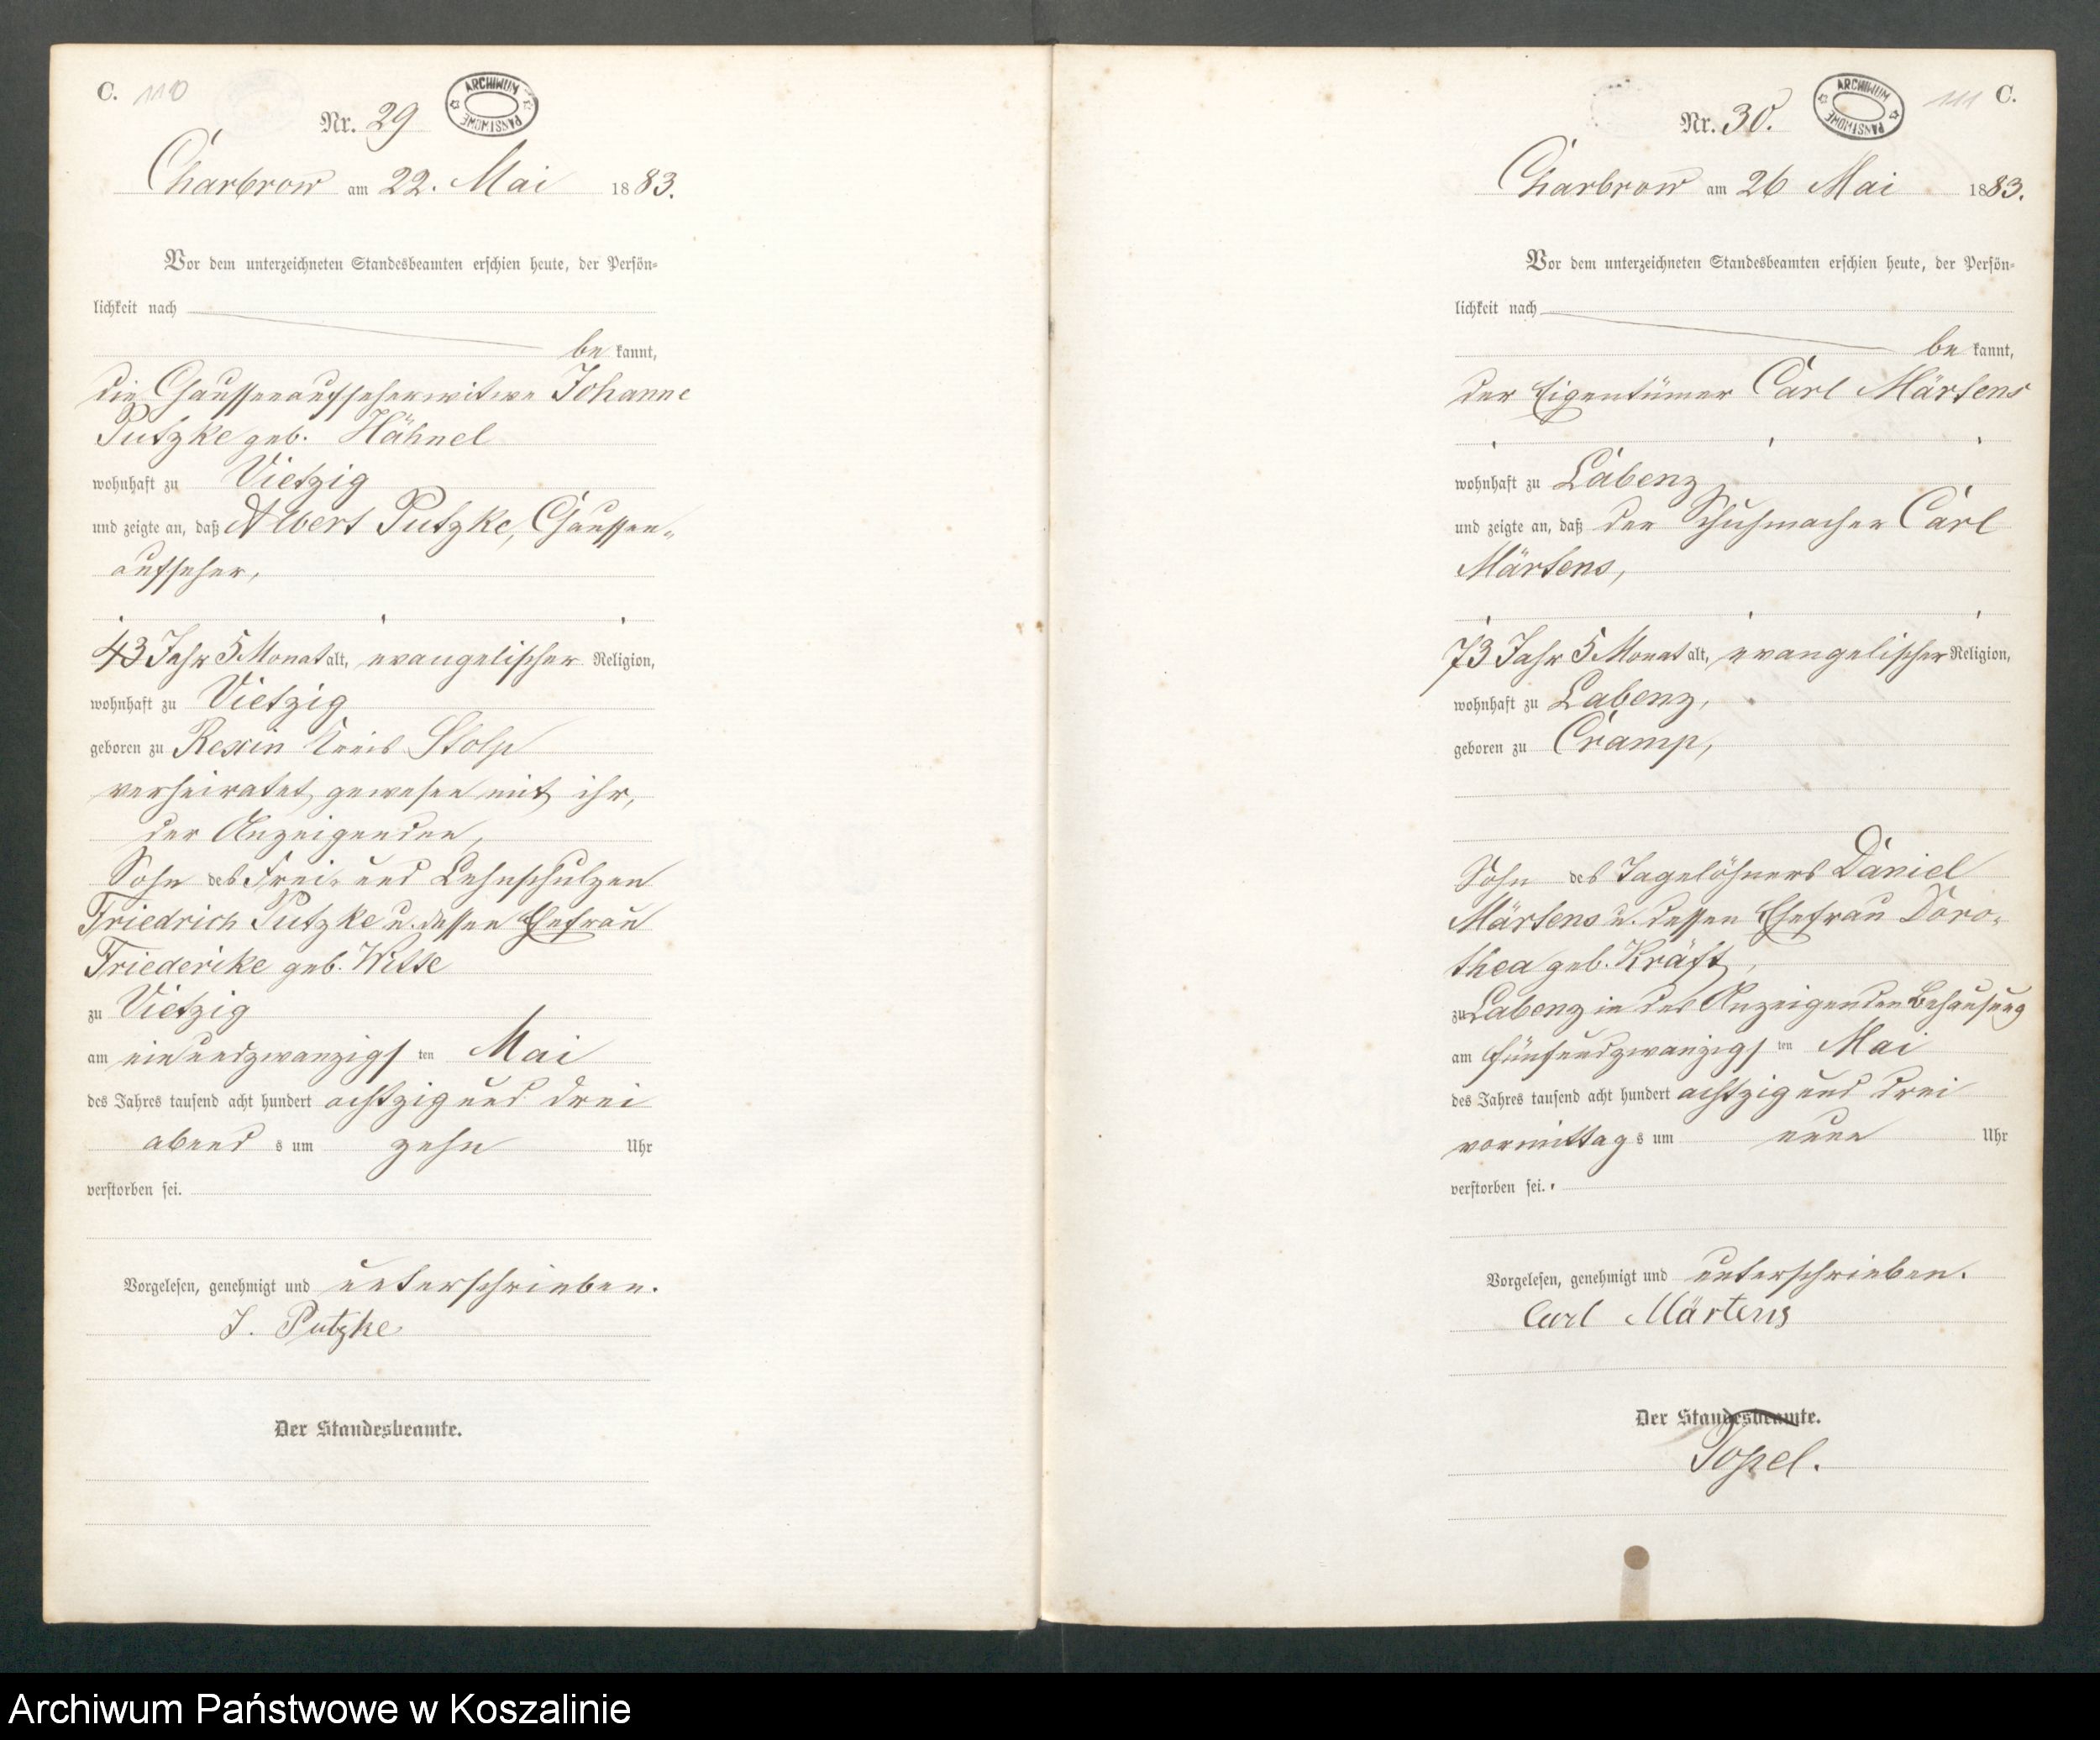 C. 110
ARCHIWUM PAŃSTWOWE
Nr. 29
Charbrow am 22. Mai 1883.
Vor dem unterzeichneten Standesbeamten erschien heute, der Persön-
lichkeit nach
be kannt,
die Chausseeaufseherwitwe Johanne
Putzke geb. Hähnel
wohnhaft zu Vietzig
und zeigte an, daß Albert Putzke, Chaussee-
aufseher,
43 Jahr 5 Monat alt, evangelischer Religion,
wohnhaft zu Vietzig
geboren zu Rexin Kreis Stolp
verheiratet gewesen mit ihr,
der Anzeigenden,
Sohn des Frei- und Lehnschulzen
Friedrich Putzke u. dessen Ehefrau
Friederike geb. Witte
zu Vietzig
am einundzwanzigsten Mai
des Jahres tausend acht hundert achtzig und drei
abend s um zehn Uhr
verstorben sei.
Vorgelesen, genehmigt und unterschrieben.
J. Putzke
Der Standesbeamte.
111 C.
ARCHIWUM PAŃSTWOWE
Nr. 30.
Charbrow am 26 Mai 1883.
Vor dem unterzeichneten Standesbeamten erschien heute, der Persön-
lichkeit nach
be kannt,
der Eigentümer Carl Märtens
wohnhaft zu Labenz
und zeigte an, daß der Schuhmacher Carl
Märtens,
73 Jahr 5 Monat alt, evangelischer Religion,
wohnhaft zu Labenz,
geboren zu Cramp,
Sohn des Tagelöhners Daniel
Märtens u. dessen Ehefrau Doro-
thea geb. Kräft,
zu Labenz in des Anzeigenden Behausung
am fünfundzwanzigsten Mai
des Jahres tausend acht hundert achtzig und drei
vormittag s um neun Uhr
verstorben sei.
Vorgelesen, genehmigt und unterschrieben.
Carl Märtens
Der Standesbeamte.
Topel.
Archiwum Państwowe w Koszalinie